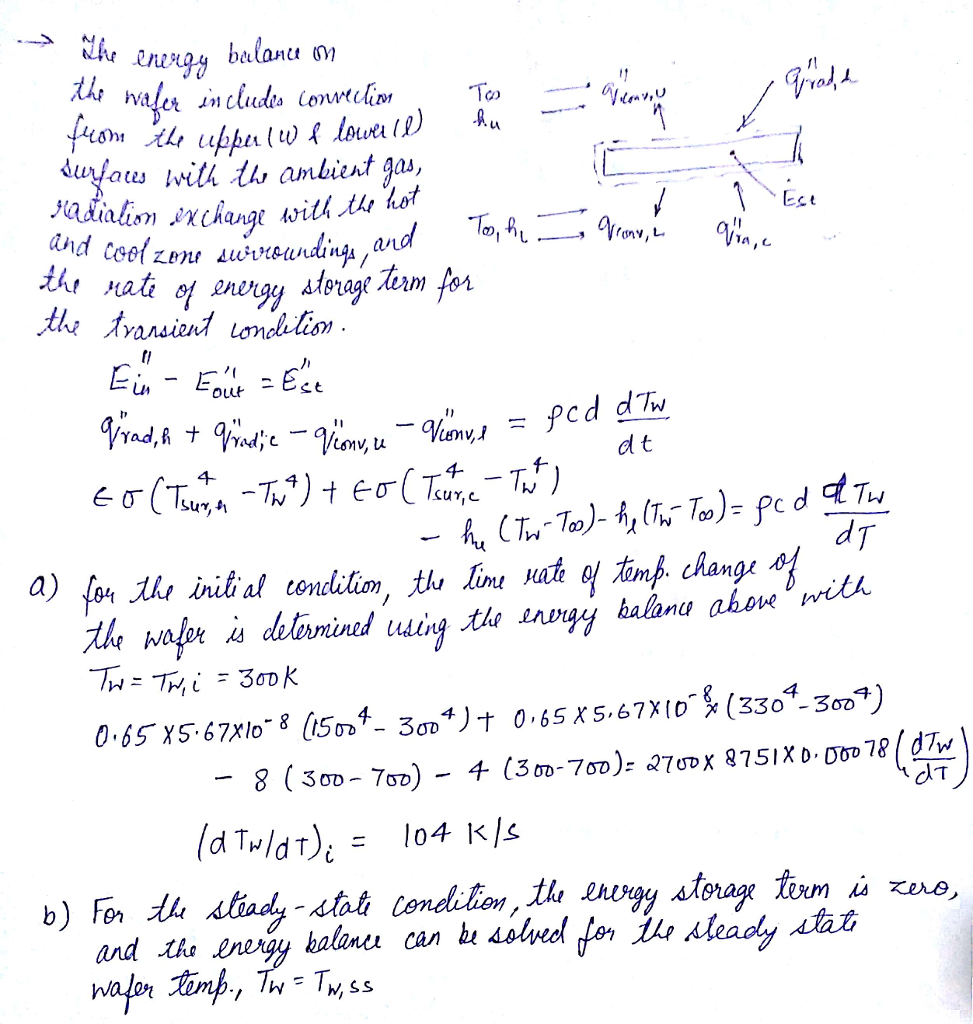 → The energy balance on
the wafer includes convection
from the upper (w & lower (l)
surfaces with the ambient gas,
radiation exchange with the hot
and cool zone surroundings, and
the rate of energy storage term for
the transient condition.
T∞
hu
q''conv,u
q''rad,h
Ėst
T∞, hL
qconv,L
q''ra,c
E''in - E''out = E''st
q''rad,h + q''rad,c - q''conv,u - q''conv,l = ρcd dTw/dt
εσ(T⁴sur,h - Tw⁴) + εσ(T⁴sur,c - Tw⁴)
- hu (Tw-T∞) - hl(Tw-T∞) = ρcd dTw/dT
a) for the initial condition, the time rate of temp. change of
the wafer is determined using the energy balance above with
Tw = Tw,i = 300K
0.65 X5.67X10⁻⁸ (1500⁴ - 300⁴) + 0.65X5.67X10⁻⁸ x (330⁴-300⁴)
- 8 (300-700) - 4 (300-700) = 2700X 8751X0.00078 (dTw/dT)
(dTw/dT)i = 104 K/s
b) For the steady-state condition, the energy storage term is zero,
and the energy balance can be solved for the steady state
wafer temp., Tw = Tw,ss